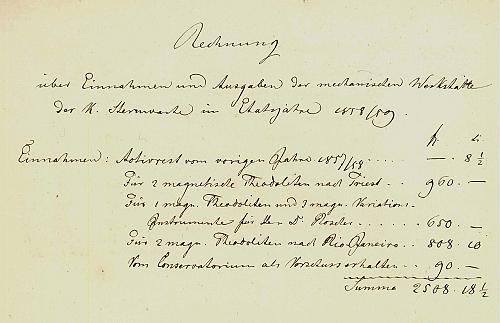 Rechnung
über Einnahmen und Ausgaben der mechanischen Werkstätte
der K. Sternwarte im Etatsjahre 1858/59.
fl. x.
Einnahmen: Activrest vom vorigen Jahre 1857/58 . . . . — . 8 1/2
Für 2 magnetische Theodoliten nach Triest . . 960 . —
Für 1 magn. Theodoliten und 3 magn. Variations-
Instrumente für Her Dr. . . . . 650 . —
Für 2 magn. Theodoliten nach Rio-Janeiro . . 808 . 10
Vom Conservatorium als Vorschuss erhalten . . 90 . —
Summa 2508 . 18 1/2